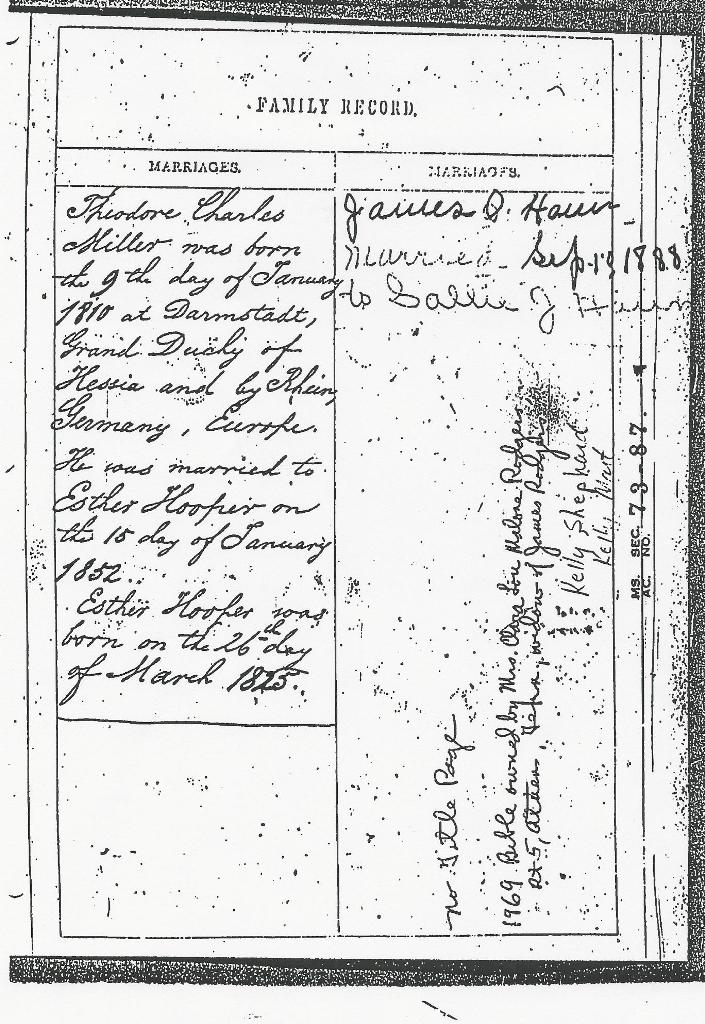 FAMILY RECORD.
MARRIAGES.
Theodore Charles
Miller was born
the 9th day of January
1810 at Darmstadt,
Grand Duchy of
Hessia and by Rhein,
Germany, Europe.
He was married to
Esther Hooper on
the 15 day of January
1852.
Esther Hooper was
born on the 26th day
of March 1825.
MARRIAGES.
James D. Haun
Married Sep 1888
to Sallie J Haun
No Title Page
1969 Bible owned by Mrs. Clara Lou Malone Rodgers
Rt 5, Athens, Tenn., widow of James Rodgers
Kelly Shephard
Kelly
MS. SEC.
AC. NO. 73-87